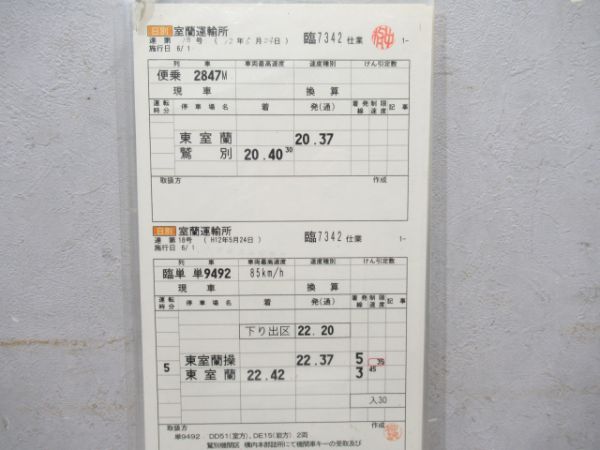 日別 室蘭運輸所
運 第 18 号 ( 12年5月24日 ) 臨7342 仕業 1-
施行日 6/1
列車 車両最高速度 速度種別 けん引定数
便乗 2847M
現車 換算
運転時分 停車場名 着 発(通) 着発線 制限速度 記事
東室蘭 20.37
鷲別 20.40 30
取扱方 作成
日別 室蘭運輸所
運 第18号 ( H12年5月24日 ) 臨7342 仕業 1-
施行日 6/1
列車 車両最高速度 速度種別 けん引定数
臨単 単9492 85km/h
現車 換算
運転時分 停車場名 着 発(通) 着発線 制限速度 記事
下り出区 22.20
東室蘭操 22.37 5
5 東室蘭 22.42 3 45
入30
取扱方 作成
単9492 DD51(室方)、DE15(岩方) 2両
鷲別機関区 構内本部詰所にて機関車キーの受取及び